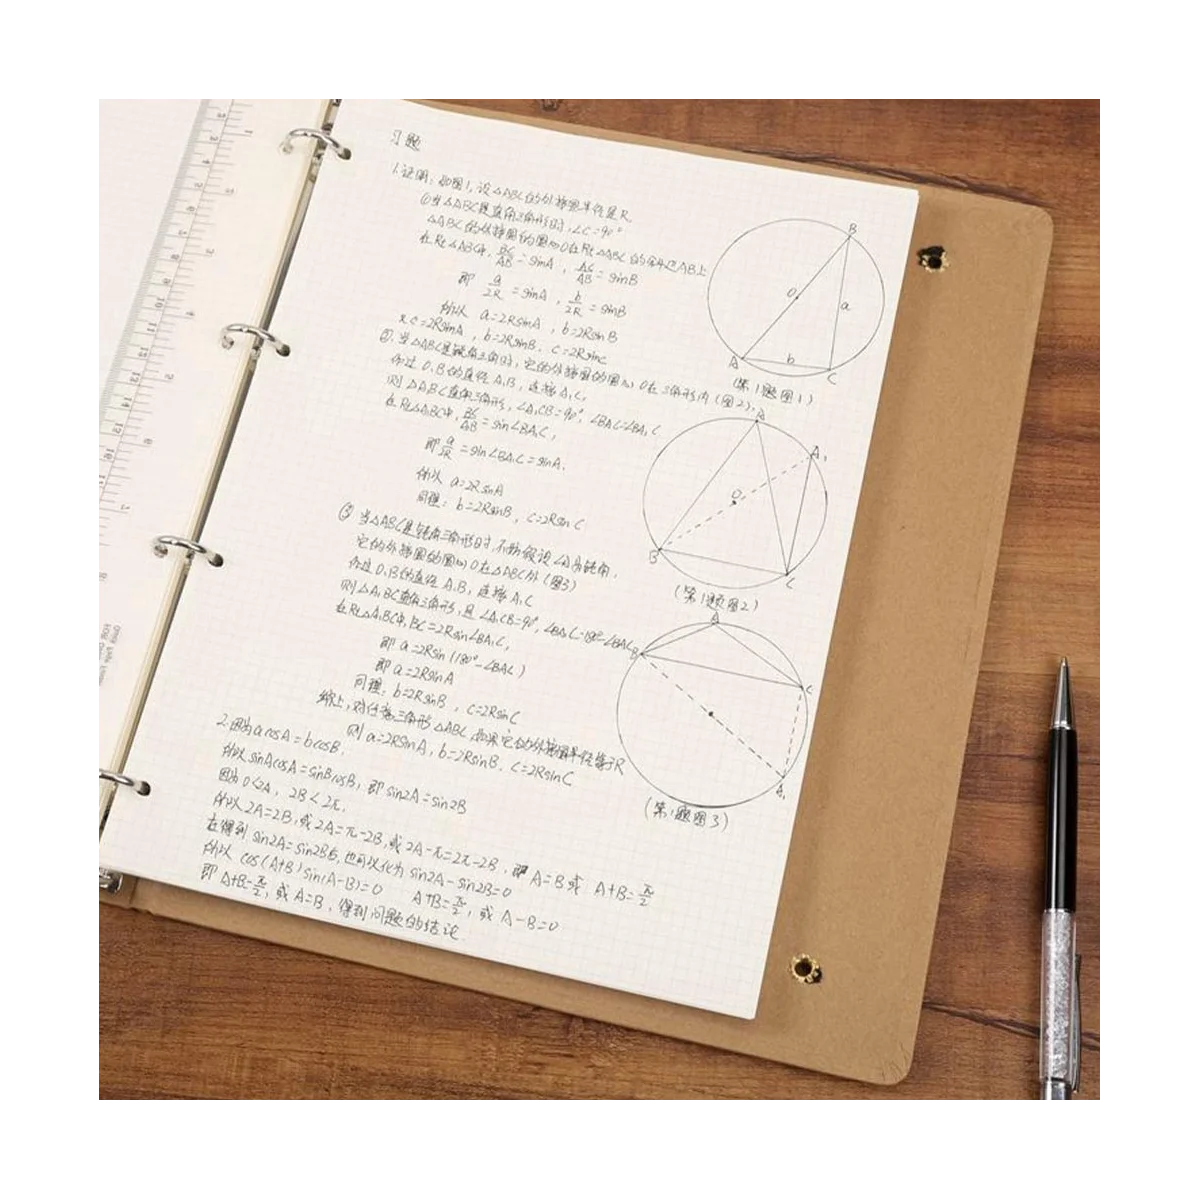 习题
1.证明:如图1,设△ABC的外接圆半径是R
①当△ABC是直角三角形时,∠C=90°
△ABC的外接圆的圆心O在Rt△ABC的斜边AB上
在Rt△ABC中,BC/AB=sinA,AC/AB=sinB
即 a/2R=sinA,b/2R=sinB
所以 a=2RsinA,b=2RsinB
又c=2RsinA,b=2RsinB.c=2RsinC
②.当△ABC是锐角三角时,它的外接圆的圆心O在三角形内(图2),
作过O.B的直径A₁B,连接A₁C,
则△ABC直角三角形,∠A₁CB=90°,∠BAC=∠BA₁C
在Rt△ABC中,BC/AB=sin∠BA₁C,
即a/2R=sin∠BA₁C=sinA.
所以 a=2RsinA
同理:b=2RsinB,c=2RsinC
③当△ABC是钝角三角形时,不妨假设∠A为钝角,
它的外接圆的圆心O在△ABC外(图3)
作过O.B的直径A₁B,连接A₁C
则△A₁BC直角三角形,且∠A₁CB=90°,∠BA₁C=180°-∠BAC
在Rt△A₁BC中,BC=2Rsin∠BA₁C,
即 a=2Rsin(180°-∠BAC)
即 a=2RsinA
同理:b=2RsinB,c=2RsinC
综上,对任意三角形△ABC,如果它的外接圆半径等于R
则 a=2RsinA,b=2RsinB.c=2RsinC
2.因为acosA=bcosB.
所以sinAcosA=sinBcosB,即sin2A=sin2B
因为0<2A,2B<2π.
所以2A=2B,或2A=π-2B,或2A-π=2π-2B,即A=B或 A+B=π/2
在得到sin2A=sin2B后,也可以化为 sin2A-sin2B=0
所以 cos(A+B)sin(A-B)=0 A+B=π/2,或A-B=0
即A+B=π/2,或A=B,得到问题的结论
B
O
a
b
A
C
(第1题图1)
A
A₁
O
B
C
(第1题图2)
A
B
C
A₁
(第1题图3)